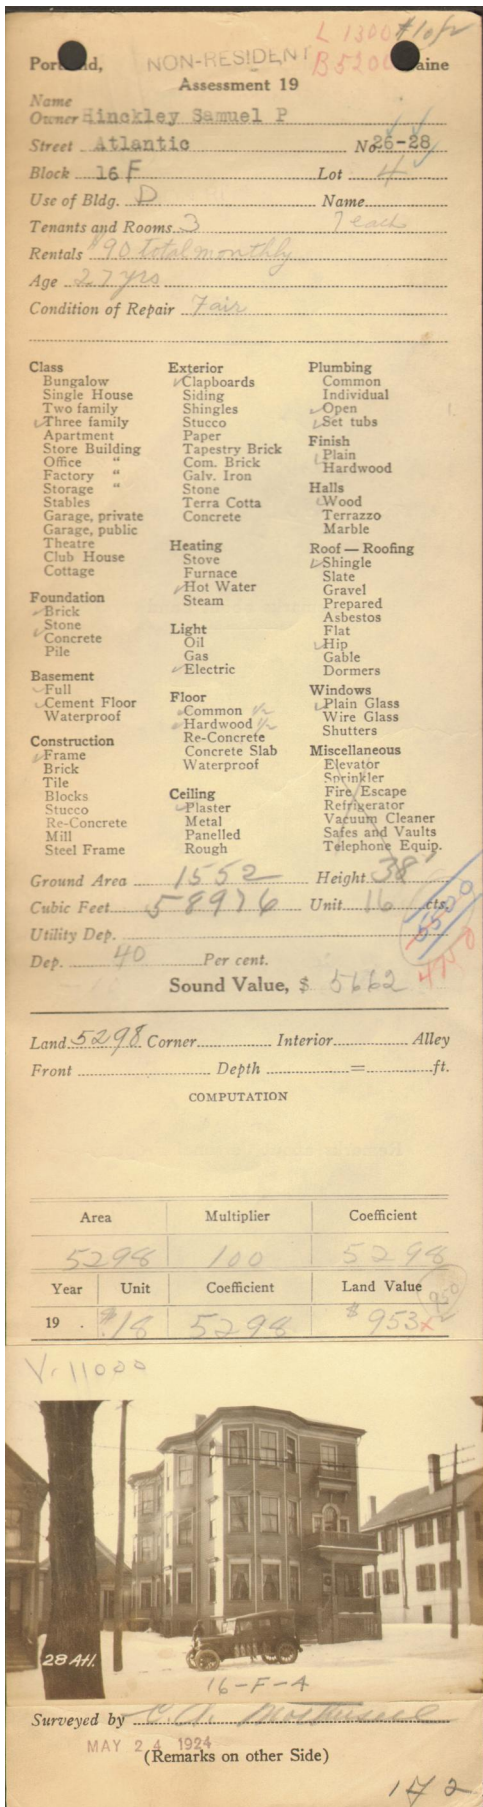 L 1300 #10/2
Portland, NON-RESIDENT B5200 Maine
Assessment 19
Name
Owner Hinckley Samuel P
Street Atlantic No. 26-28
Block 16 F Lot 4
Use of Bldg. D Name
Tenants and Rooms 3 7 each
Rentals $90 total monthly
Age 27 yrs
Condition of Repair Fair
Class
Bungalow
Single House
Two family
✓Three family
Apartment
Store Building
Office "
Factory "
Storage "
Stables
Garage, private
Garage, public
Theatre
Club House
Cottage
Foundation
✓Brick
✓Stone
Concrete
Pile
Basement
✓Full
✓Cement Floor
Waterproof
Construction
✓Frame
Brick
Tile
Blocks
Stucco
Re-Concrete
Mill
Steel Frame
Exterior
✓Clapboards
Siding
Shingles
Stucco
Paper
Tapestry Brick
Com. Brick
Galv. Iron
Stone
Terra Cotta
Concrete
Heating
Stove
Furnace
✓Hot Water
Steam
Light
Oil
Gas
✓Electric
Floor
✓Common 1/2
✓Hardwood 1/2
Re-Concrete
Concrete Slab
Waterproof
Ceiling
✓Plaster
Metal
Panelled
Rough
Plumbing
Common
Individual
✓Open
✓Set tubs
Finish
✓Plain
Hardwood
Halls
✓Wood
Terrazzo
Marble
Roof — Roofing
✓Shingle
Slate
Gravel
Prepared
Asbestos
Flat
✓Hip
Gable
Dormers
Windows
✓Plain Glass
Wire Glass
Shutters
Miscellaneous
Elevator
Sprinkler
Fire Escape
Refrigerator
Vacuum Cleaner
Safes and Vaults
Telephone Equip.
Ground Area 1552 Height 38'
Cubic Feet 58976 Unit 16 cts.
5500
Utility Dep.
Dep. 40 Per cent.
4750
Sound Value, $ 5662
Land 5298 Corner Interior Alley
Front Depth = ft.
COMPUTATION
Area Multiplier Coefficient
5298 100 5298
Year Unit Coefficient Land Value
950
19 . $18 5298 $953
V-11000
28 Atl.
16-F-4
Surveyed by C. A.
MAY 24 1924
(Remarks on other Side)